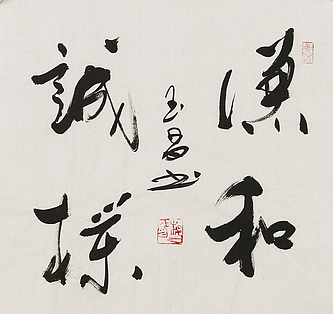 謙和
誠樸
玉昌书